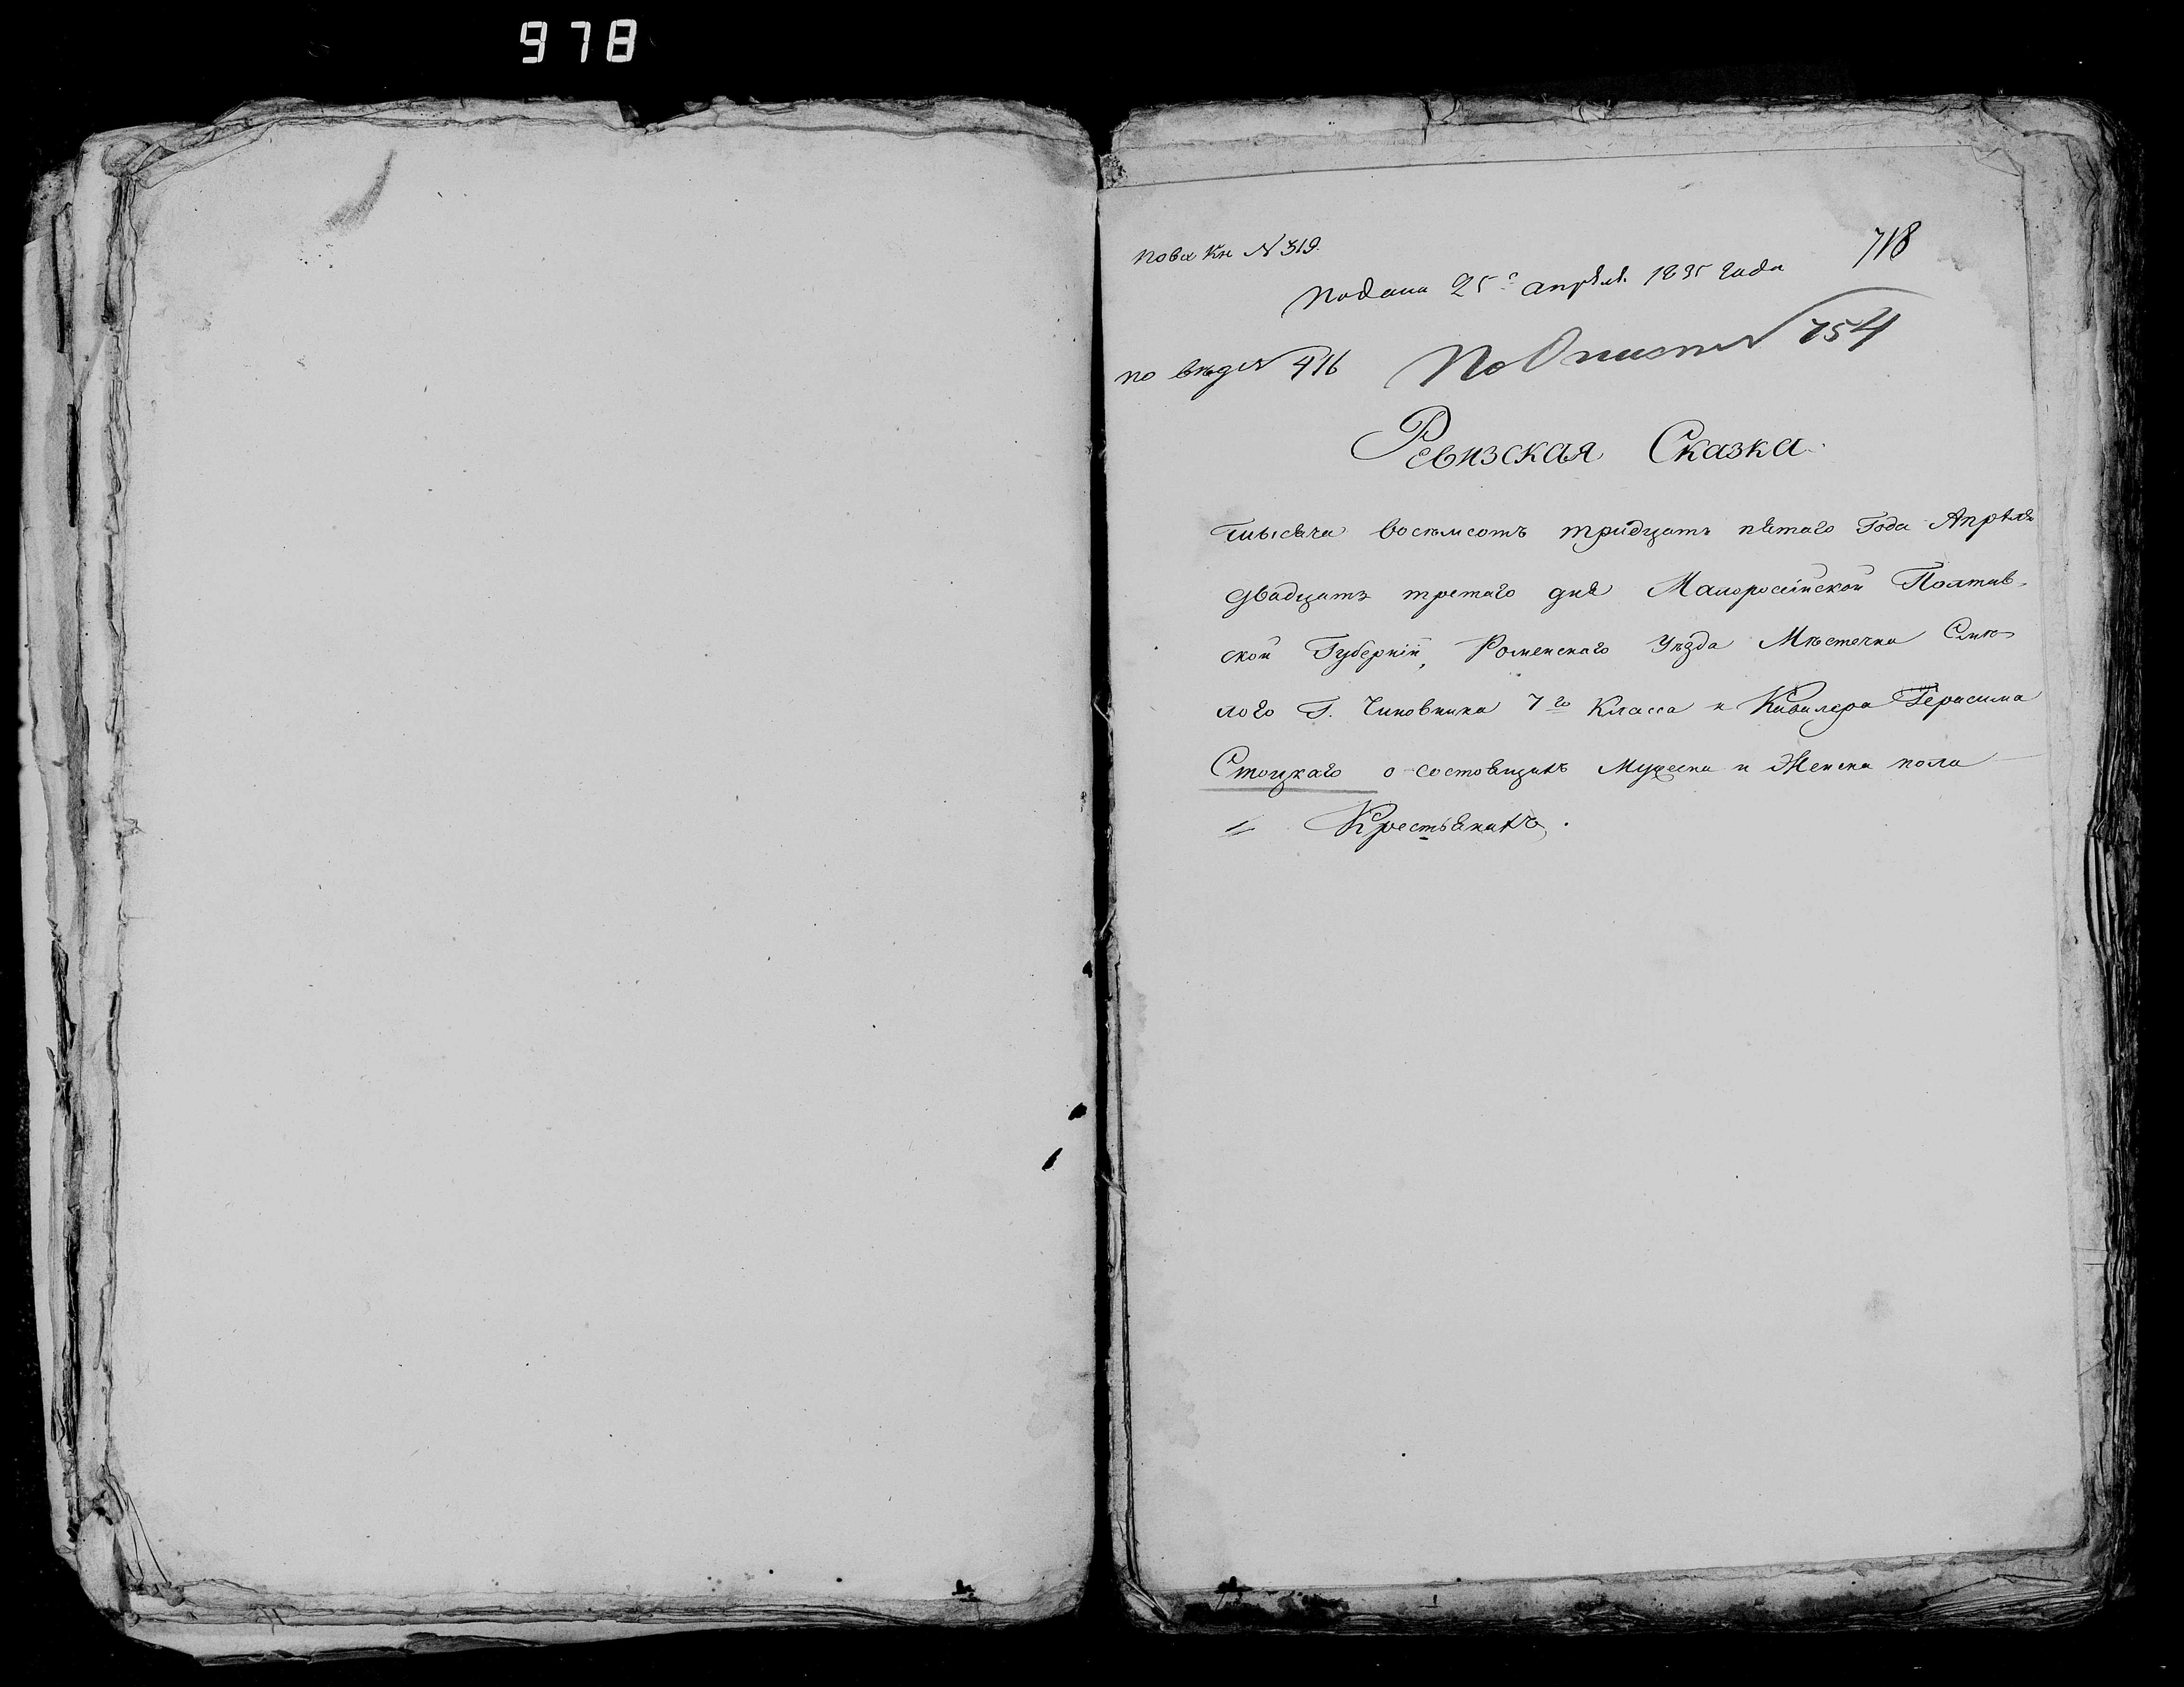 978
по вх Кн № 319.
718
Подана 25го апрѣля 1835 года
по вѣд № 416
По Описи № 754
Ревизская Сказка.
тысяча восемсотъ тридцать пятаго Года Апрѣля
двадцать третаго дня Малоросійской Полтав-
ской Губерніи, Роменскаго Уѣзда Мѣстечка Смѣ-
лого Г. Чиновника 7го Класса и Кавалера Герасима
Стоцкаго о состоящихъ Мужеска и Женска пола
Крестьянахъ.